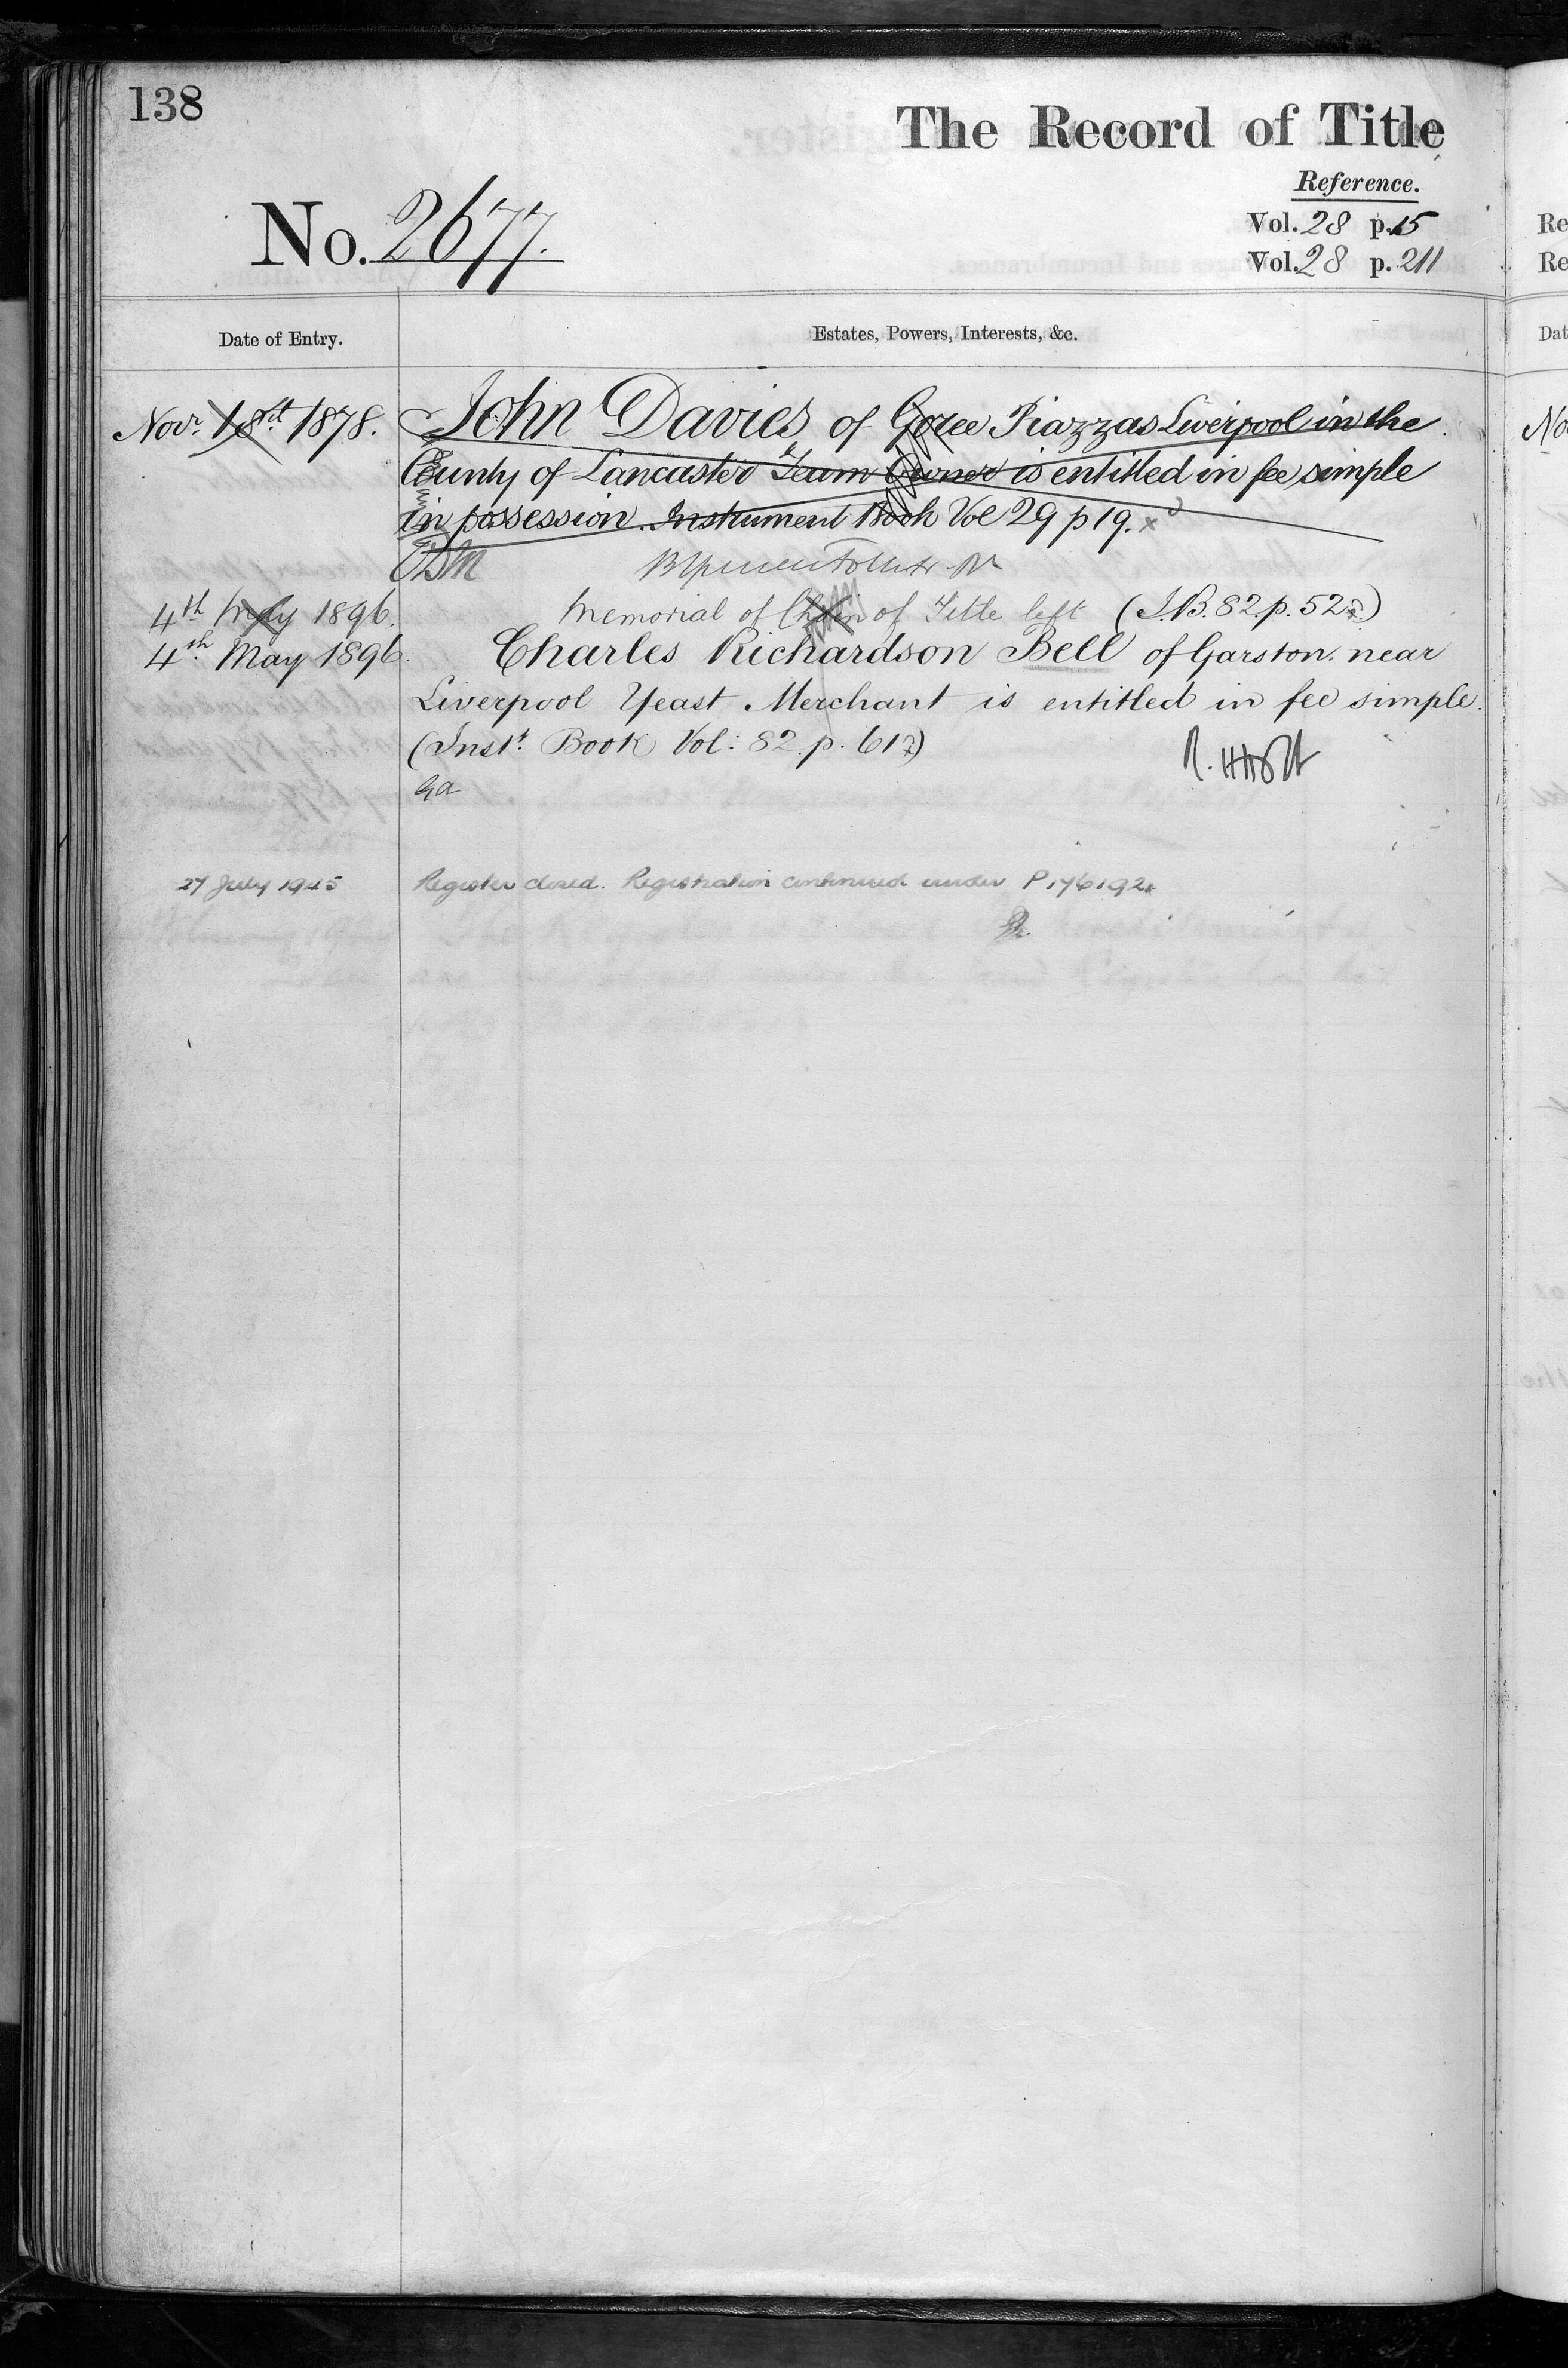 138
The Record of Title
Reference.
No. 2677.
Vol. 28 p. 15
Vol. 28 p. 211
Date of Entry.
Estates, Powers, Interests, &c.
Novr. 18th 1878. John Davies of Goree Piazzas Liverpool in the
County of Lancaster Team Owner is entitled in fee simple
in possession. Instrument Book Vol 29 p 19.
4th May 1896. Memorial of Chain of Title left (I.B. 82. p. 52)
4th May 1896. Charles Richardson Bell of Garston near
Liverpool Yeast Merchant is entitled in fee simple.
(Inst. Book Vol: 82. p. 61)
27 July Register closed. Registration continued under